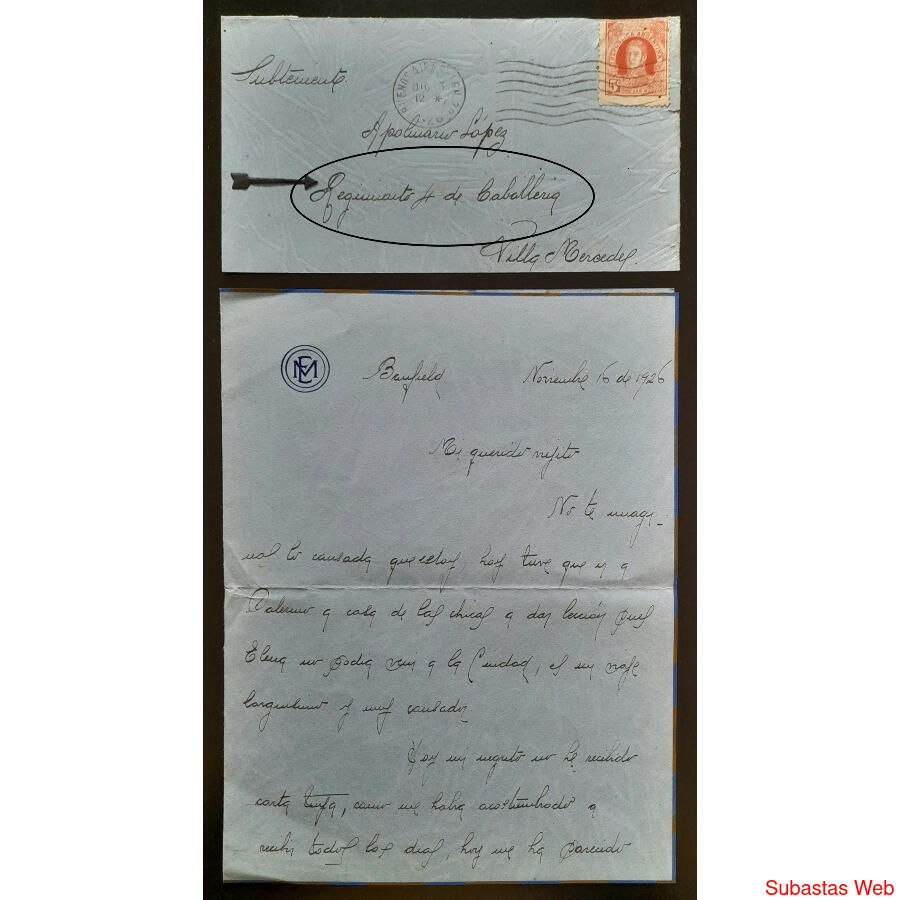 Subteniente
BUENOS AIRES
DIC
12
26
REPUBLICA ARGENTINA
5
Apolinario López
Regimiento 4 de Caballeria
Villa Mercedes.
EMC
Banfield
Noviembre 16 de 1926
Mi querido
No te imagi-
nas lo cansada que estoy, hoy tuve que ir a
Palermo a casa de las chicas a dar lección pues
Elena no podia venir a la Ciudad, es un viaje
larguisimo y muy cansador
Hoy mi negrito no he recibido
carta tuya, como me habia acostumbrado a
recibir todos los dias, hoy me ha parecido
Subastas Web